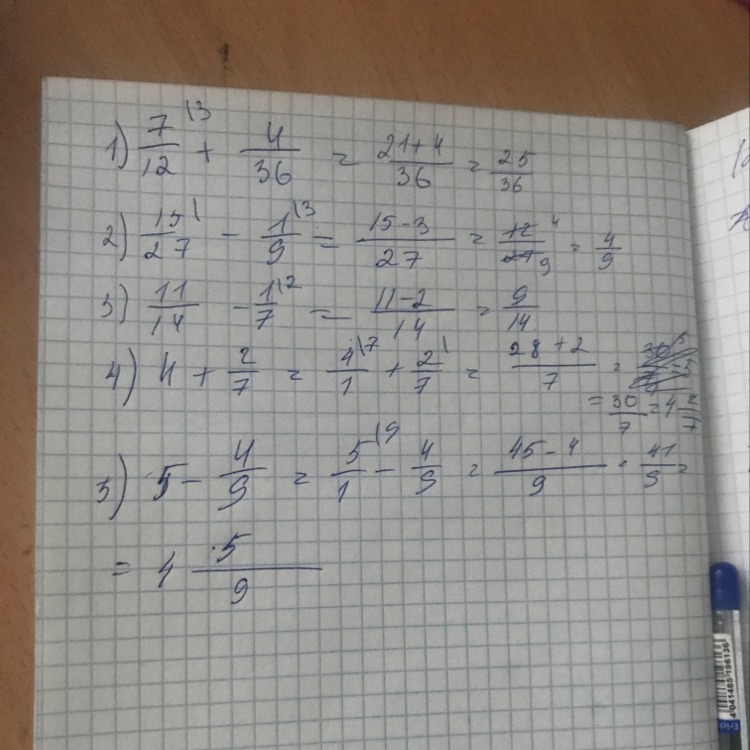 1) 7/12 \3 + 4/36 = 21+4/36 = 25/36
2) 15/27 \1 - 1/9 \3 = 15-3/27 = 12/27 4 9 = 4/9
3) 11/14 - 1/7 \2 = 11-2/14 = 9/14
4) 4 + 2/7 = 4/1 \7 + 2/7 \1 = 28+2/7 =
= 30/7 = 4 2/7
5) 5 - 4/9 = 5/1 \9 - 4/9 = 45-4/9 = 41/9 =
= 4 5/9
4 041485 196136